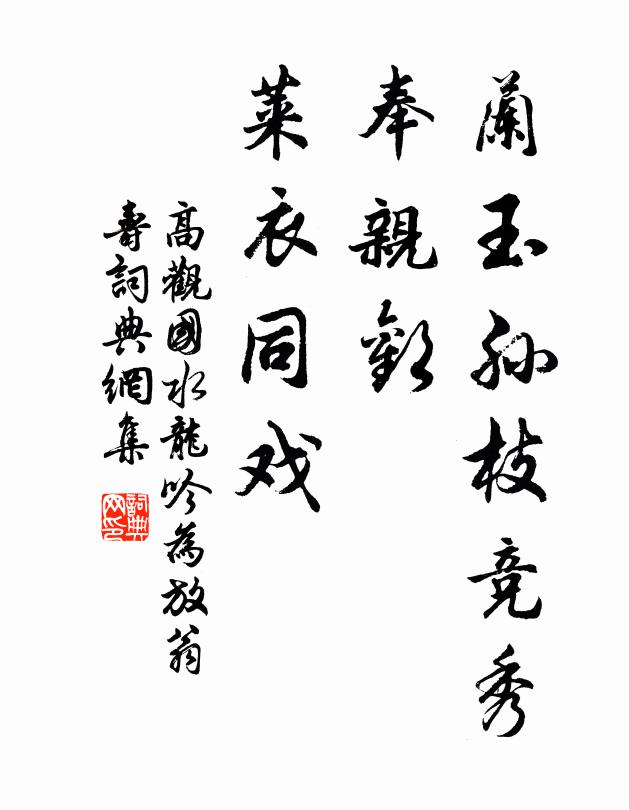 蘭玉孙枝竞秀
奉親歡
萊衣同戏
高觀國水龍吟為放翁
壽詞典網集
詞典网印